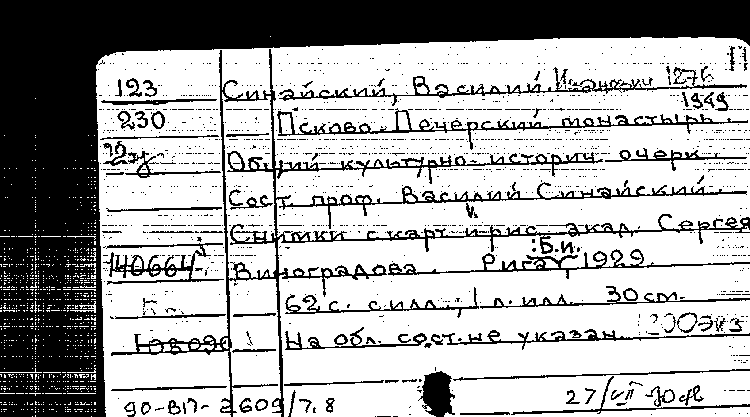 123 Синайский, Василий Иванович 1876
1949
230 Псково-Печерский монастырь.
Общий культурно-историч. очерк.
Сост. проф. Василий Синайский.
Снимки с карт. и рис. акад. Сергея
140664 Виноградова. Рига, Б.и., 1929.
62 с. с илл.; 1 л. илл. 30 cm.
На обл. сост. не указан. 200 экз
90-В17-2609/7.8 27/VII